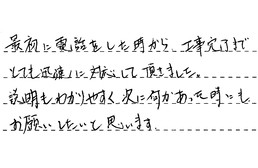 最初に電話をした時から、工事完了まで
とても迅速に対応して頂きました。
説明もわかりやすく、次に何かあった時にも
お願いしたいと思います。